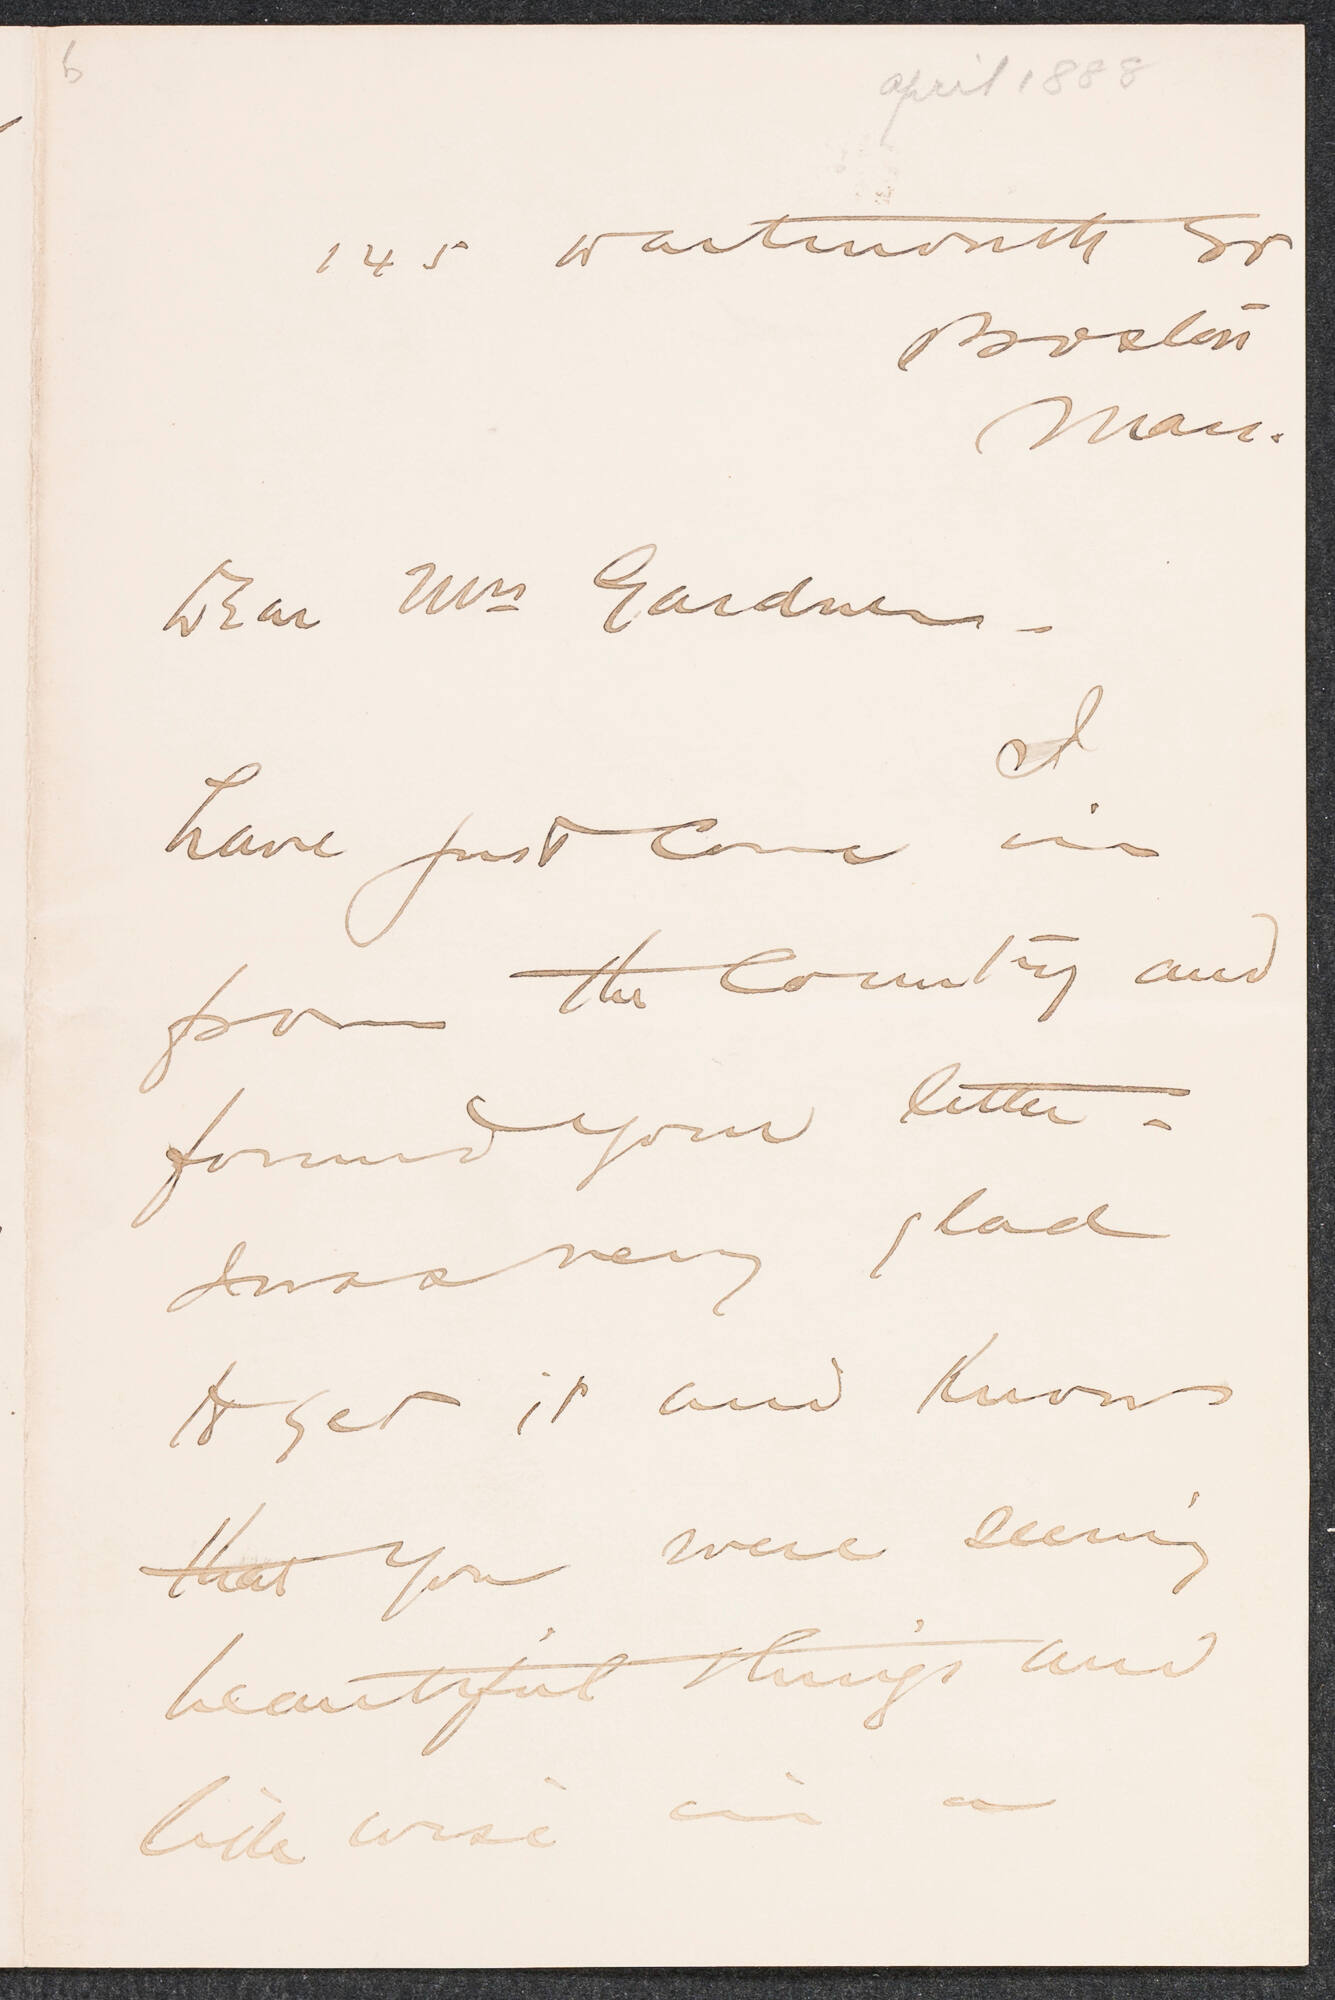 6
april 1888
145 Dartmouth St
Boston
Mass.
Dear Mrs Gardner -
I
have just come in
from the Country and
found your letter -
I was very glad
to get it and know
that you were seeing
beautiful things and
like wise in a